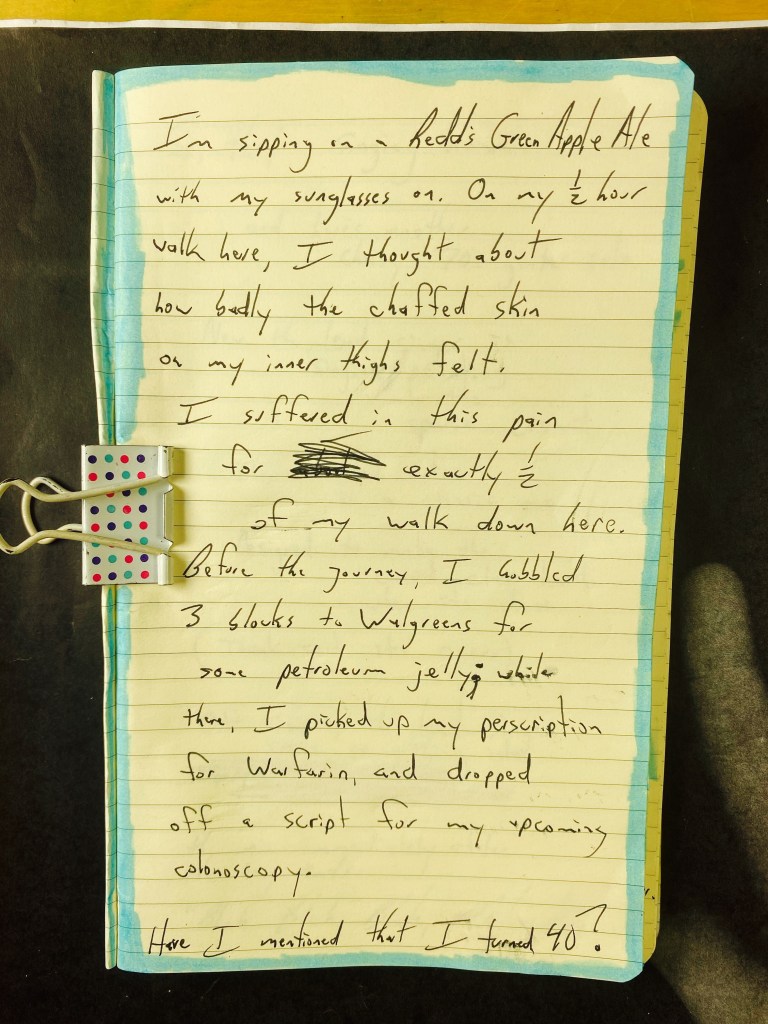 I'm sipping on a Redd's Green Apple Ale
with my sunglasses on. On my 1/2 hour
walk here, I thought about
how badly the chaffed skin
on my inner thighs felt.
I suffered in this pain
for exactly 1/2
of my walk down here.
Before the journey, I hobbled
3 blocks to Walgreens for
some petroleum jelly; while
there, I picked up my perscription
for Warfarin, and dropped
off a script for my upcoming
colonoscopy.
Have I mentioned that I turned 40?